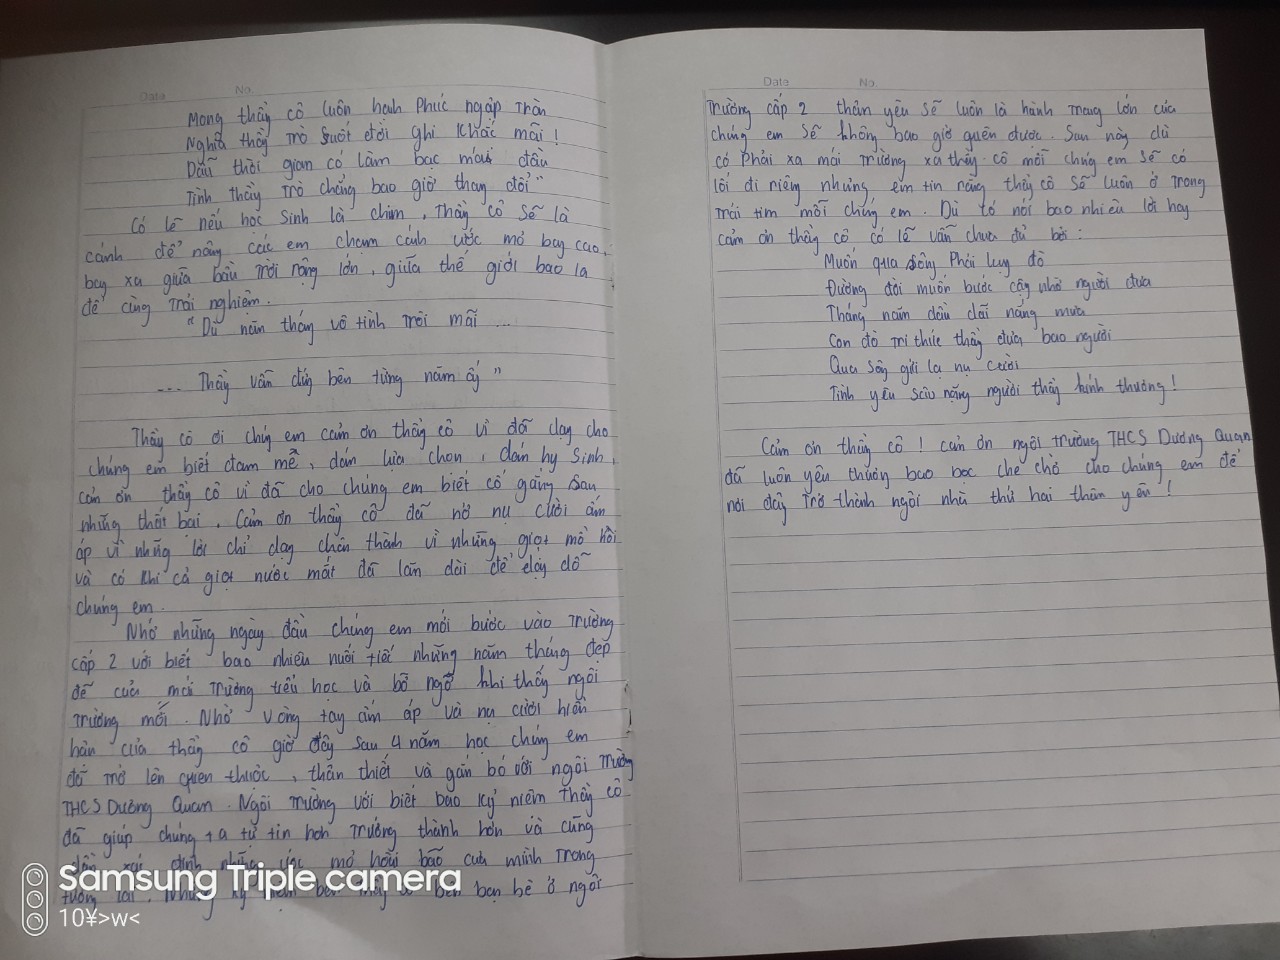 Date No.
Mong thầy cô luôn hạnh Phúc ngập tràn
Nghĩa thầy trò suốt đời ghi khắc mãi !
Dẫu thời gian có làm bạc mái đầu
Tình thầy trò chẳng bao giờ thay đổi"
Có lẽ nếu học sinh là chim, Thầy cô sẽ là
cánh để nâng các em chạm cánh ước mơ bay cao,
bay xa giữa bầu trời rộng lớn, giữa thế giới bao la
để cùng trải nghiệm.
"Dù năm tháng vô tình trôi mãi ...
... Thầy vẫn đứng bên từng năm ấy"
Thầy cô ơi chúng em cảm ơn thầy cô vì đã dạy cho
chúng em biết đam mê, dám lựa chọn, dám hy sinh,
cảm ơn thầy cô vì đã cho chúng em biết cố gắng sau
những thất bại. Cảm ơn thầy cô đã nở nụ cười ấm
áp vì những lời chỉ dạy chân thành vì những giọt mồ hôi
và có khi cả giọt nước mắt đã lăn dài để dạy dỗ
chúng em.
Nhớ những ngày đầu chúng em mới bước vào trường
cấp 2 với biết bao nhiêu nuối tiếc những năm tháng đẹp
đẽ của mái trường tiểu học và bỡ ngỡ khi thấy ngôi
trường mới. Nhờ vòng tay ấm áp và nụ cười hiền
hậu của thầy cô giờ đây sau 4 năm học chúng em
đã trở lên quen thuộc, thân thiết và gắn bó với ngôi trường
THCS Dương Quan. Ngôi trường với biết bao kỷ niệm thầy cô
đã giúp chúng ta tự tin hơn trưởng thành hơn và cũng
dần xác định những ước mơ hoài bão của mình trong
tương lai. Những kỷ niệm bên thầy cô bên bạn bè ở ngôi
Date No.
Trường cấp 2 thân yêu sẽ luôn là hành trang lớn của
chúng em sẽ không bao giờ quên được. Sau này dù
có phải xa mái trường xa thầy cô mỗi chúng em sẽ có
lối đi riêng nhưng em tin rằng thầy cô sẽ luôn ở trong
trái tim mỗi chúng em. Dù có nói bao nhiêu lời hay
cảm ơn thầy cô có lẽ vẫn chưa đủ bởi:
Muốn qua sông Phải lụy đò
Đường đời muốn bước cậy nhờ người đưa
Tháng năm dầu dãi nắng mưa
Con đò tri thức thầy đưa bao người
Qua sông gửi lạ nụ cười
Tình yêu sâu nặng người thầy kính thương!
Cảm ơn thầy cô ! cản ơn ngôi trường THCS Dương Quan
đã luôn yêu thương bao bọc che chở cho chúng em để
nơi đây trở thành ngôi nhà thứ hai thân yên !
Samsung Triple camera
10¥>w<